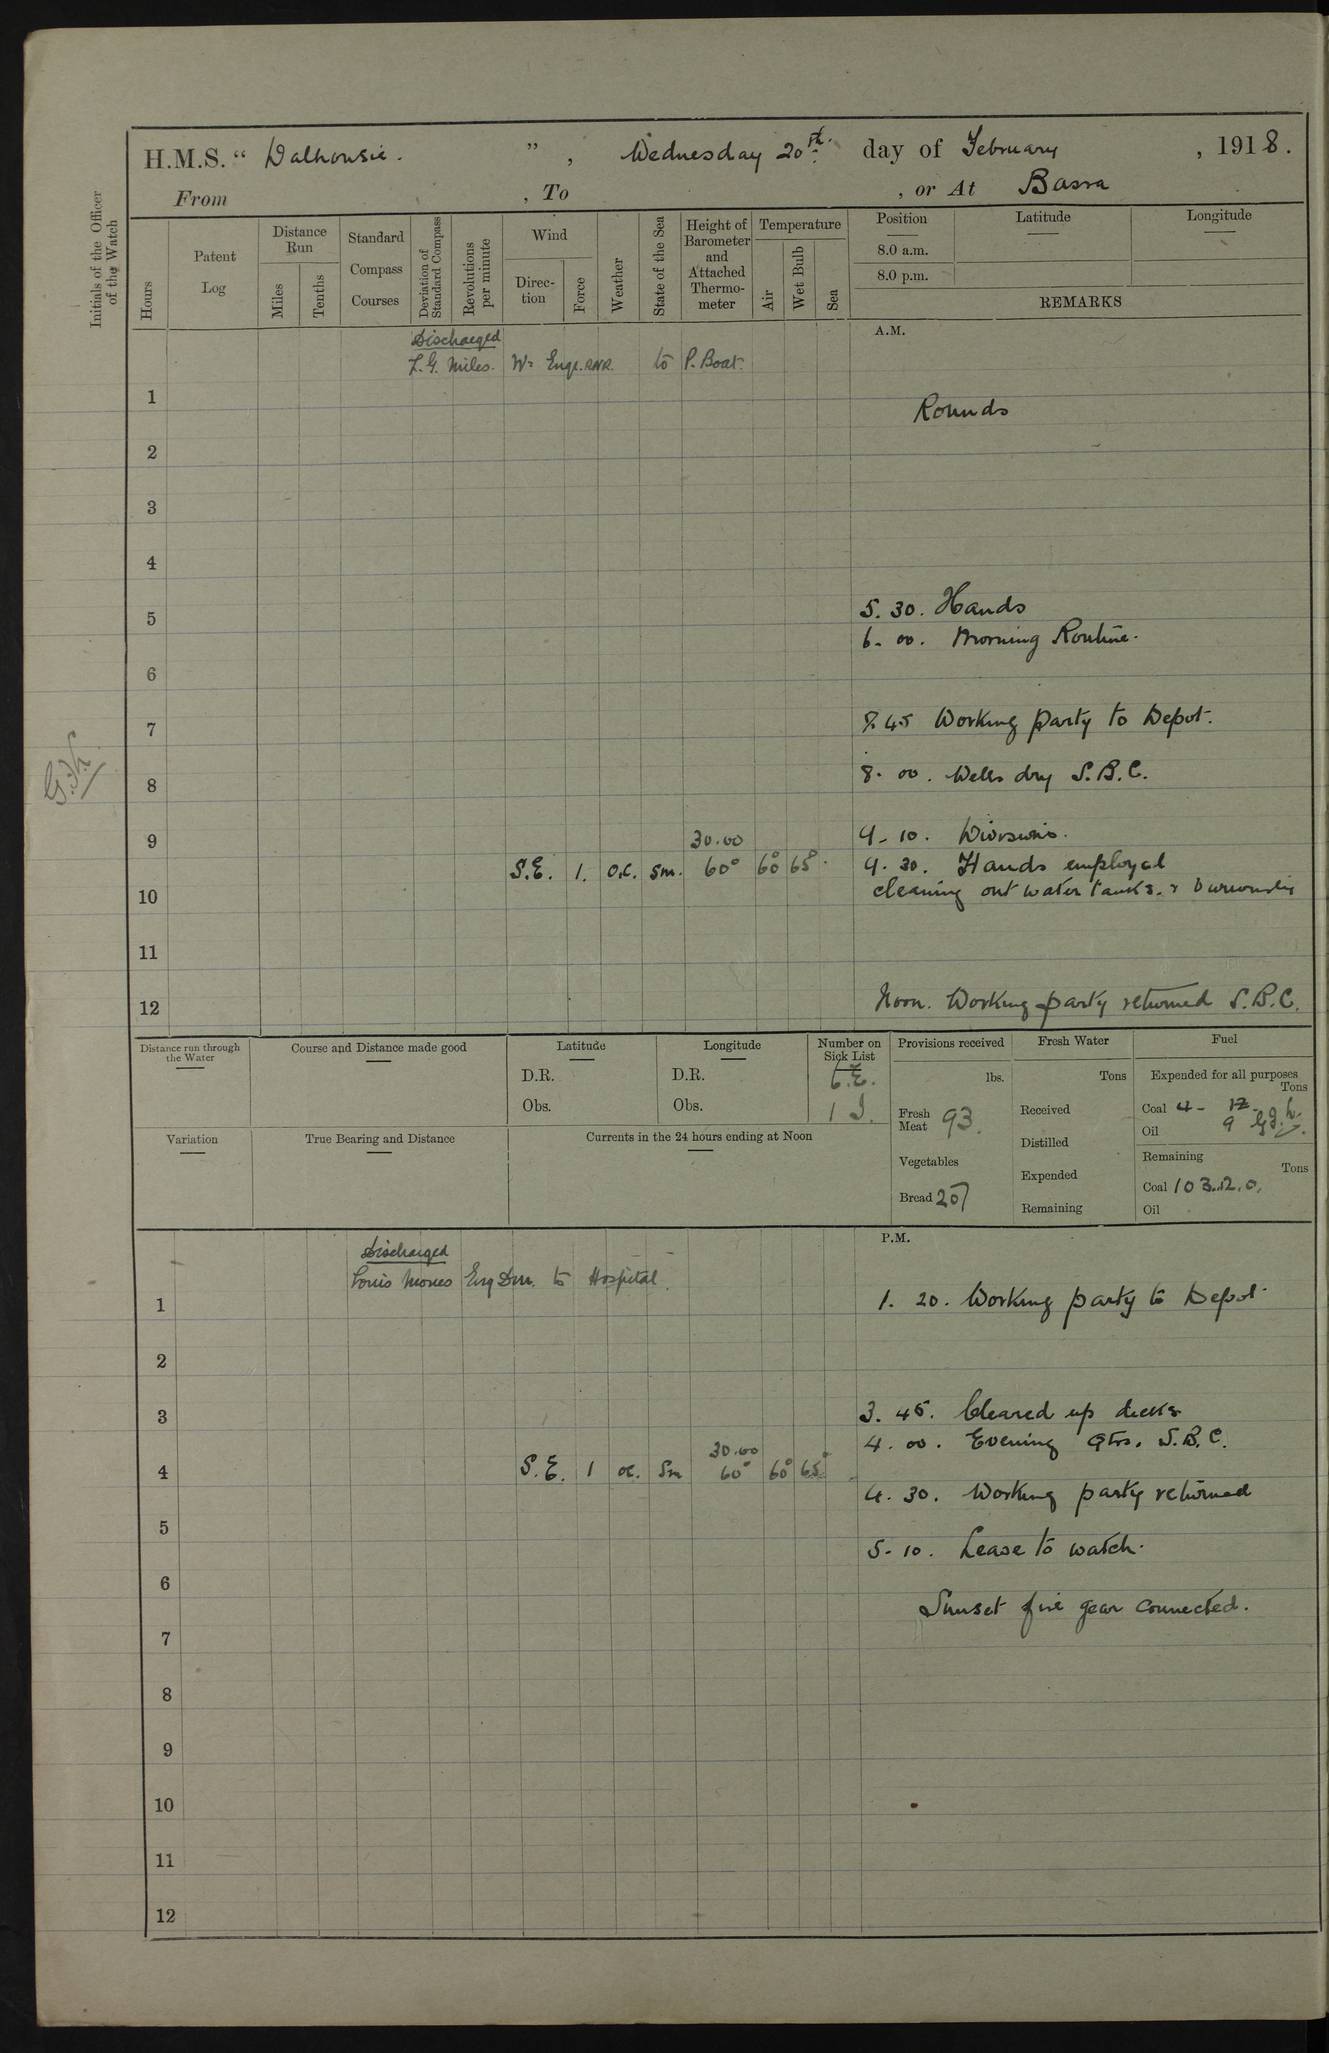 H.M.S. “ Dalhousie. ” , Wednesday 20th. day of February , 1918.
From , To , or At Basra
Initials of the Officer of the Watch
Hours
Patent Log
Distance Run
Miles
Tenths
Standard Compass Courses
Deviation of Standard Compass
Revolutions per minute
Wind
Direction
Force
Weather
State of the Sea
Height of Barometer and Attached Thermometer
Temperature
Air
Wet Bulb
Sea
Position
8.0 a.m.
8.0 p.m.
Latitude
Longitude
REMARKS
A.M.
Discharged
L.G. Miles. Wt Engr. RNR. to P. Boat.
1
Rounds
2
3
4
5
5. 30. Hands
6. 00. Morning Routine.
6
7
7. 45 Working party to Depot.
8
8. 00. Wells dry S.B.C.
9
30.00
9. 10. Divisions.
S.E. 1. o.c. sm. 60° 60° 65°.
9. 30. Hands employed
10
cleaning out water tanks. &
11
12
Noon. Working party returned S.B.C.
Distance run through the Water
Course and Distance made good
Latitude
D.R.
Obs.
Longitude
D.R.
Obs.
Number on Sick List
6. E.
1 I.
Provisions received
lbs.
Fresh Meat 93.
Vegetables
Bread 207
Fresh Water
Tons
Received
Distilled
Expended
Remaining
Fuel
Expended for all purposes
Tons
Coal 4 - 12
9
Oil
Remaining
Tons
Coal 103.12.0.
Oil
Variation
True Bearing and Distance
Currents in the 24 hours ending at Noon
P.M.
Discharged
Louis to Hospital.
1
1. 20. Working party to Depot.
2
3
3. 45. Cleared up decks
4. 00. Evening Qtrs. S.B.C.
30.00
4
S.E. 1 oc. Sm 60° 60° 65°
4. 30. Working party returned
5
5. 10. Leave to watch.
6
Sunset fire gear connected.
7
8
9
10
11
12